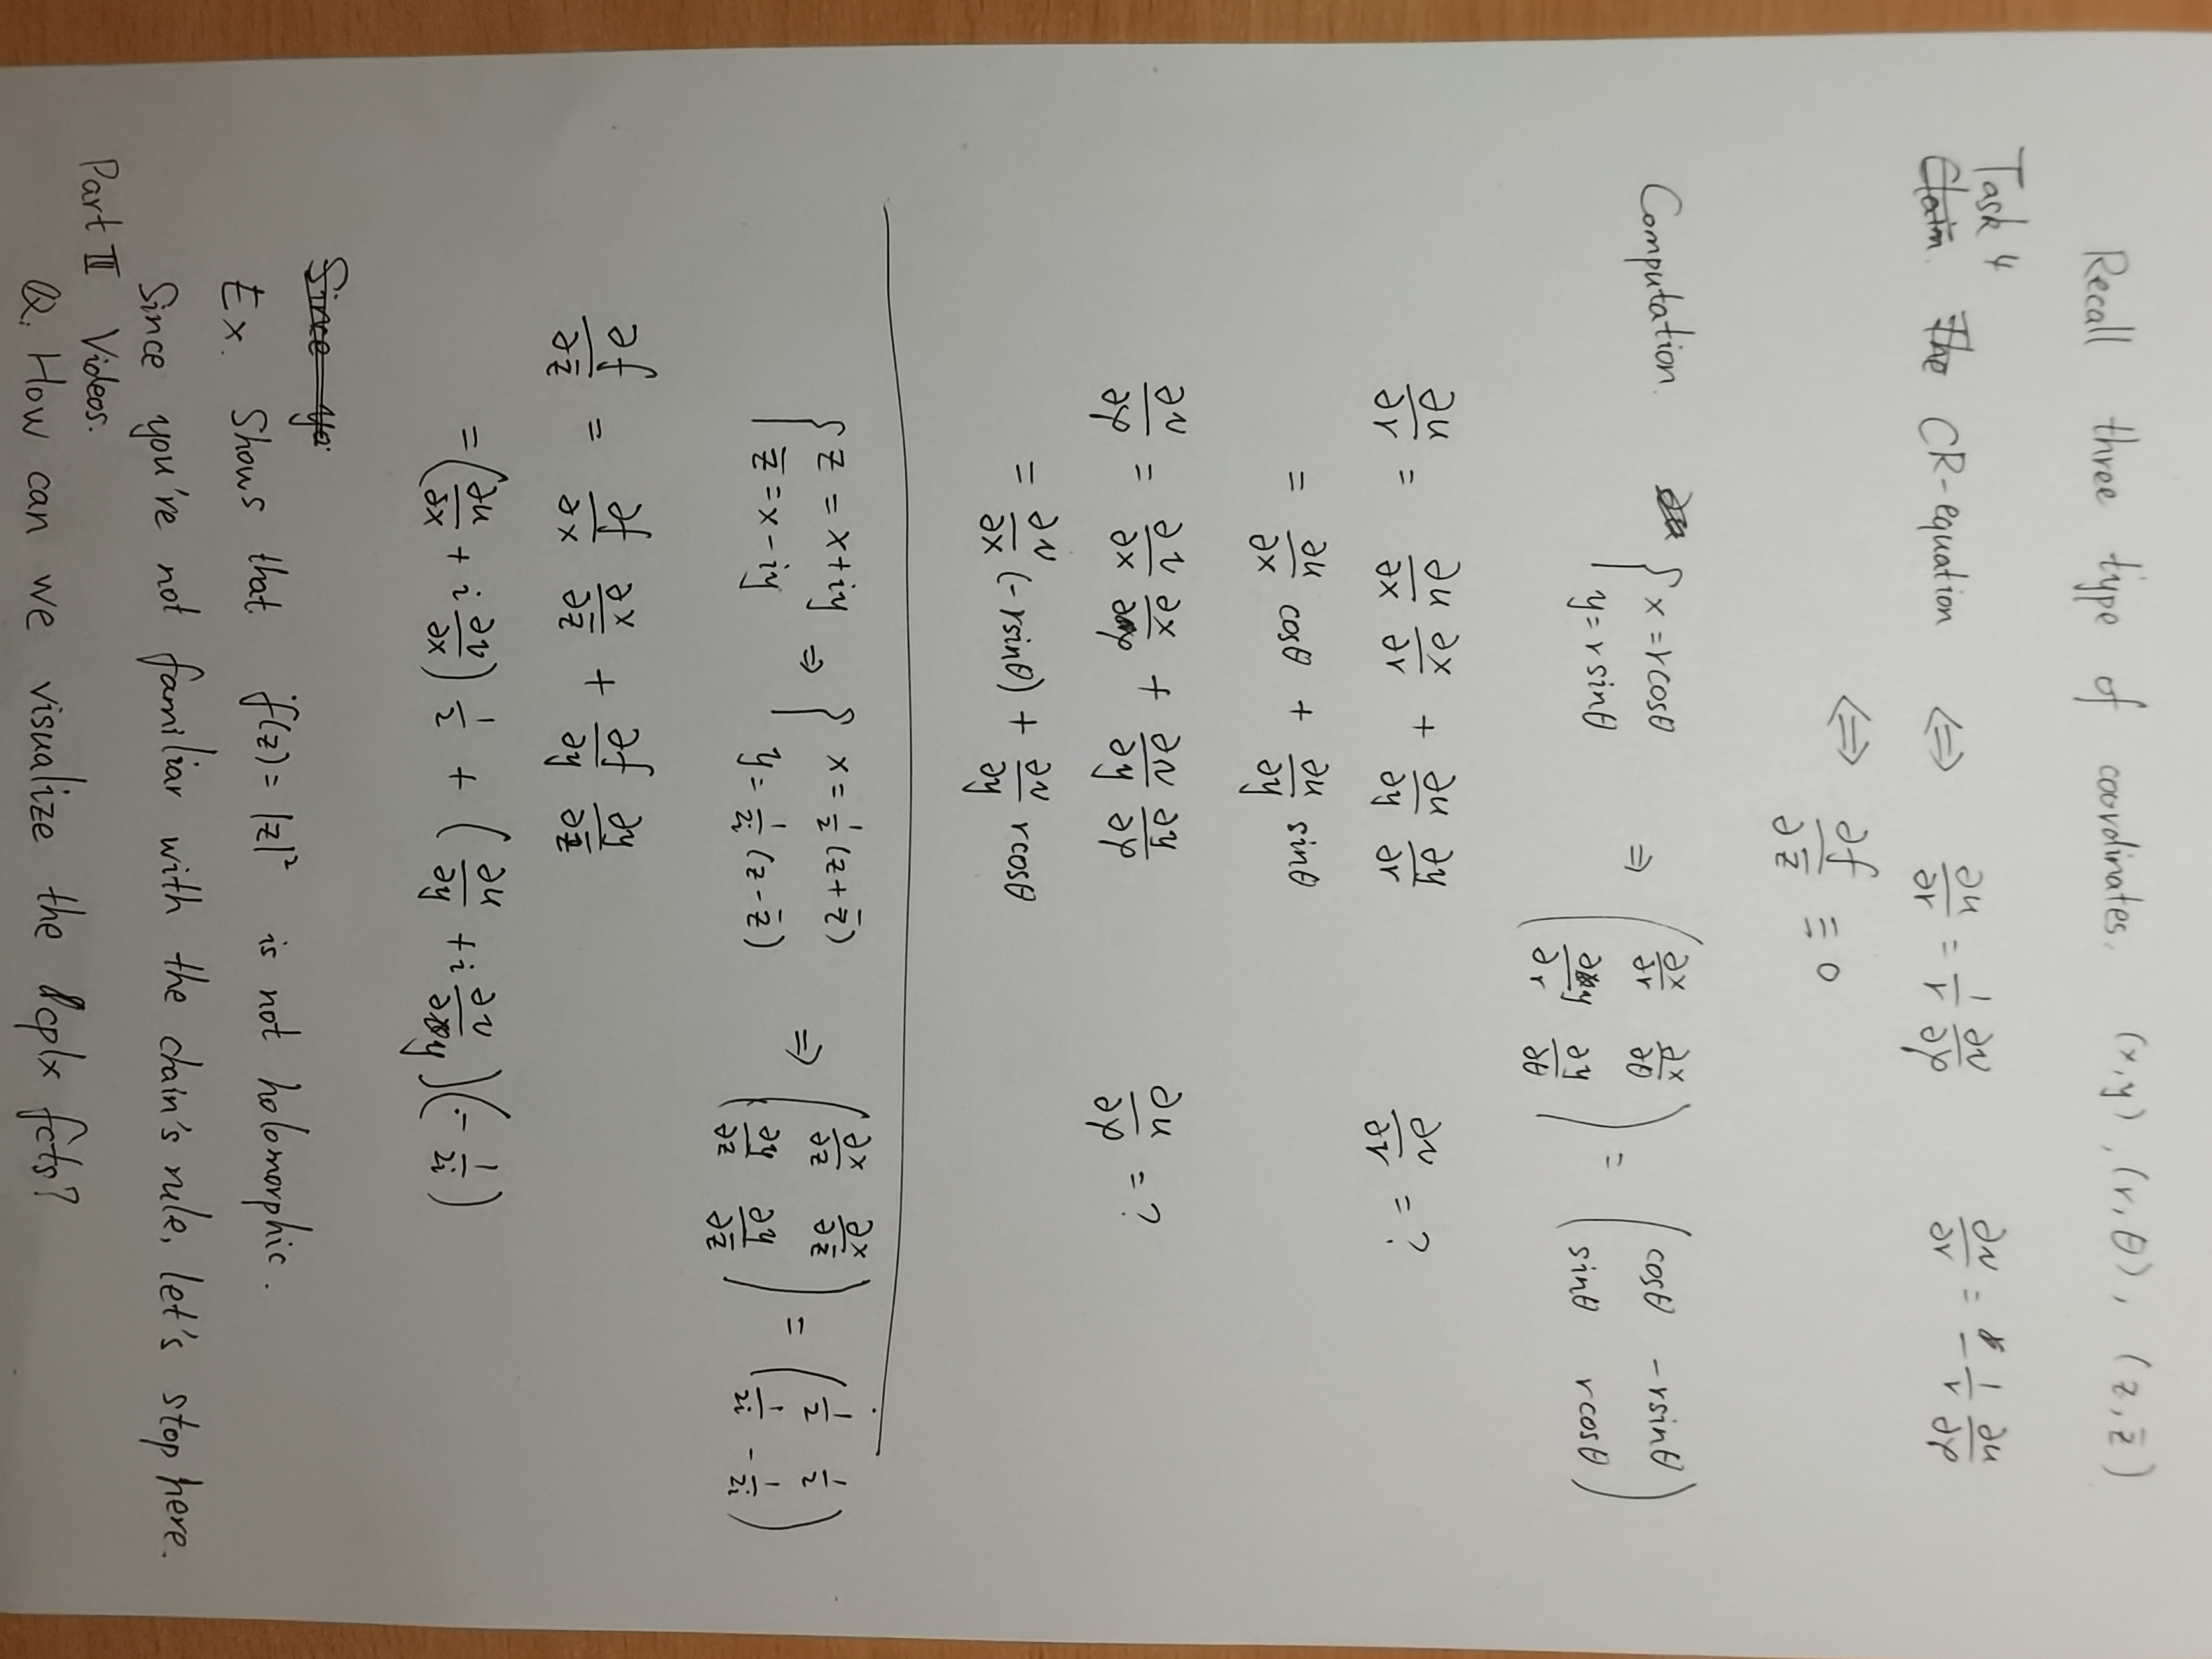 Recall three type of coordinates. (x,y), (r,θ), (z,z̄)
Task 4
~~Claim.~~ ~~The~~ CR-equation ⟺ ∂u/∂r = 1/r ∂v/∂φ ∂v/∂r = - 1/r ∂u/∂φ
⟺ ∂f/∂z̄ ≡ 0
Computation. { x = rcosθ, y = rsinθ ⇒ (∂x/∂r ∂x/∂θ; ∂y/∂r ∂y/∂θ) = (cosθ -rsinθ; sinθ rcosθ)
∂u/∂r = ∂u/∂x ∂x/∂r + ∂u/∂y ∂y/∂r ∂v/∂r = ?
= ∂u/∂x cosθ + ∂u/∂y sinθ
∂v/∂φ = ∂v/∂x ∂x/∂φ + ∂v/∂y ∂y/∂φ ∂u/∂φ = ?
= ∂v/∂x (-rsinθ) + ∂v/∂y rcosθ
{ z = x+iy, z̄ = x-iy ⇒ { x = 1/2 (z+z̄), y = 1/2i (z-z̄) ⇒ (∂x/∂z ∂x/∂z̄; ∂y/∂z ∂y/∂z̄) = (1/2 1/2; 1/2i -1/2i)
∂f/∂z̄ = ∂f/∂x ∂x/∂z̄ + ∂f/∂y ∂y/∂z̄
= (∂u/∂x + i ∂v/∂x) 1/2 + (∂u/∂y + i ∂v/∂y)(- 1/2i)
~~Since yo~~
Ex. Shows that f(z) = |z|² is not holomorphic.
Since you're not familiar with the chain's rule, let's stop here.
Part II Videos.
Q. How can we visualize the cplx fcts?